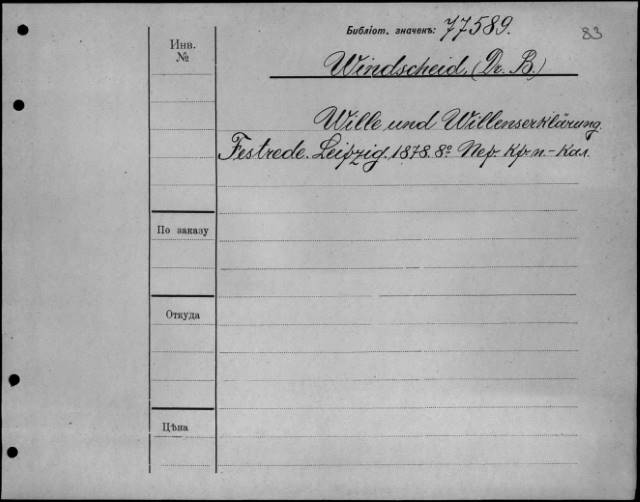 Библіот. значекъ: 77589.
83
Инв.
№
Windscheid, (Dr. B.)
Wille und Willenserklärung.
Festrede. Leipzig. 1878. 8º Пер. Кр. п.-Кал.
По заказу
Откуда
Цѣна